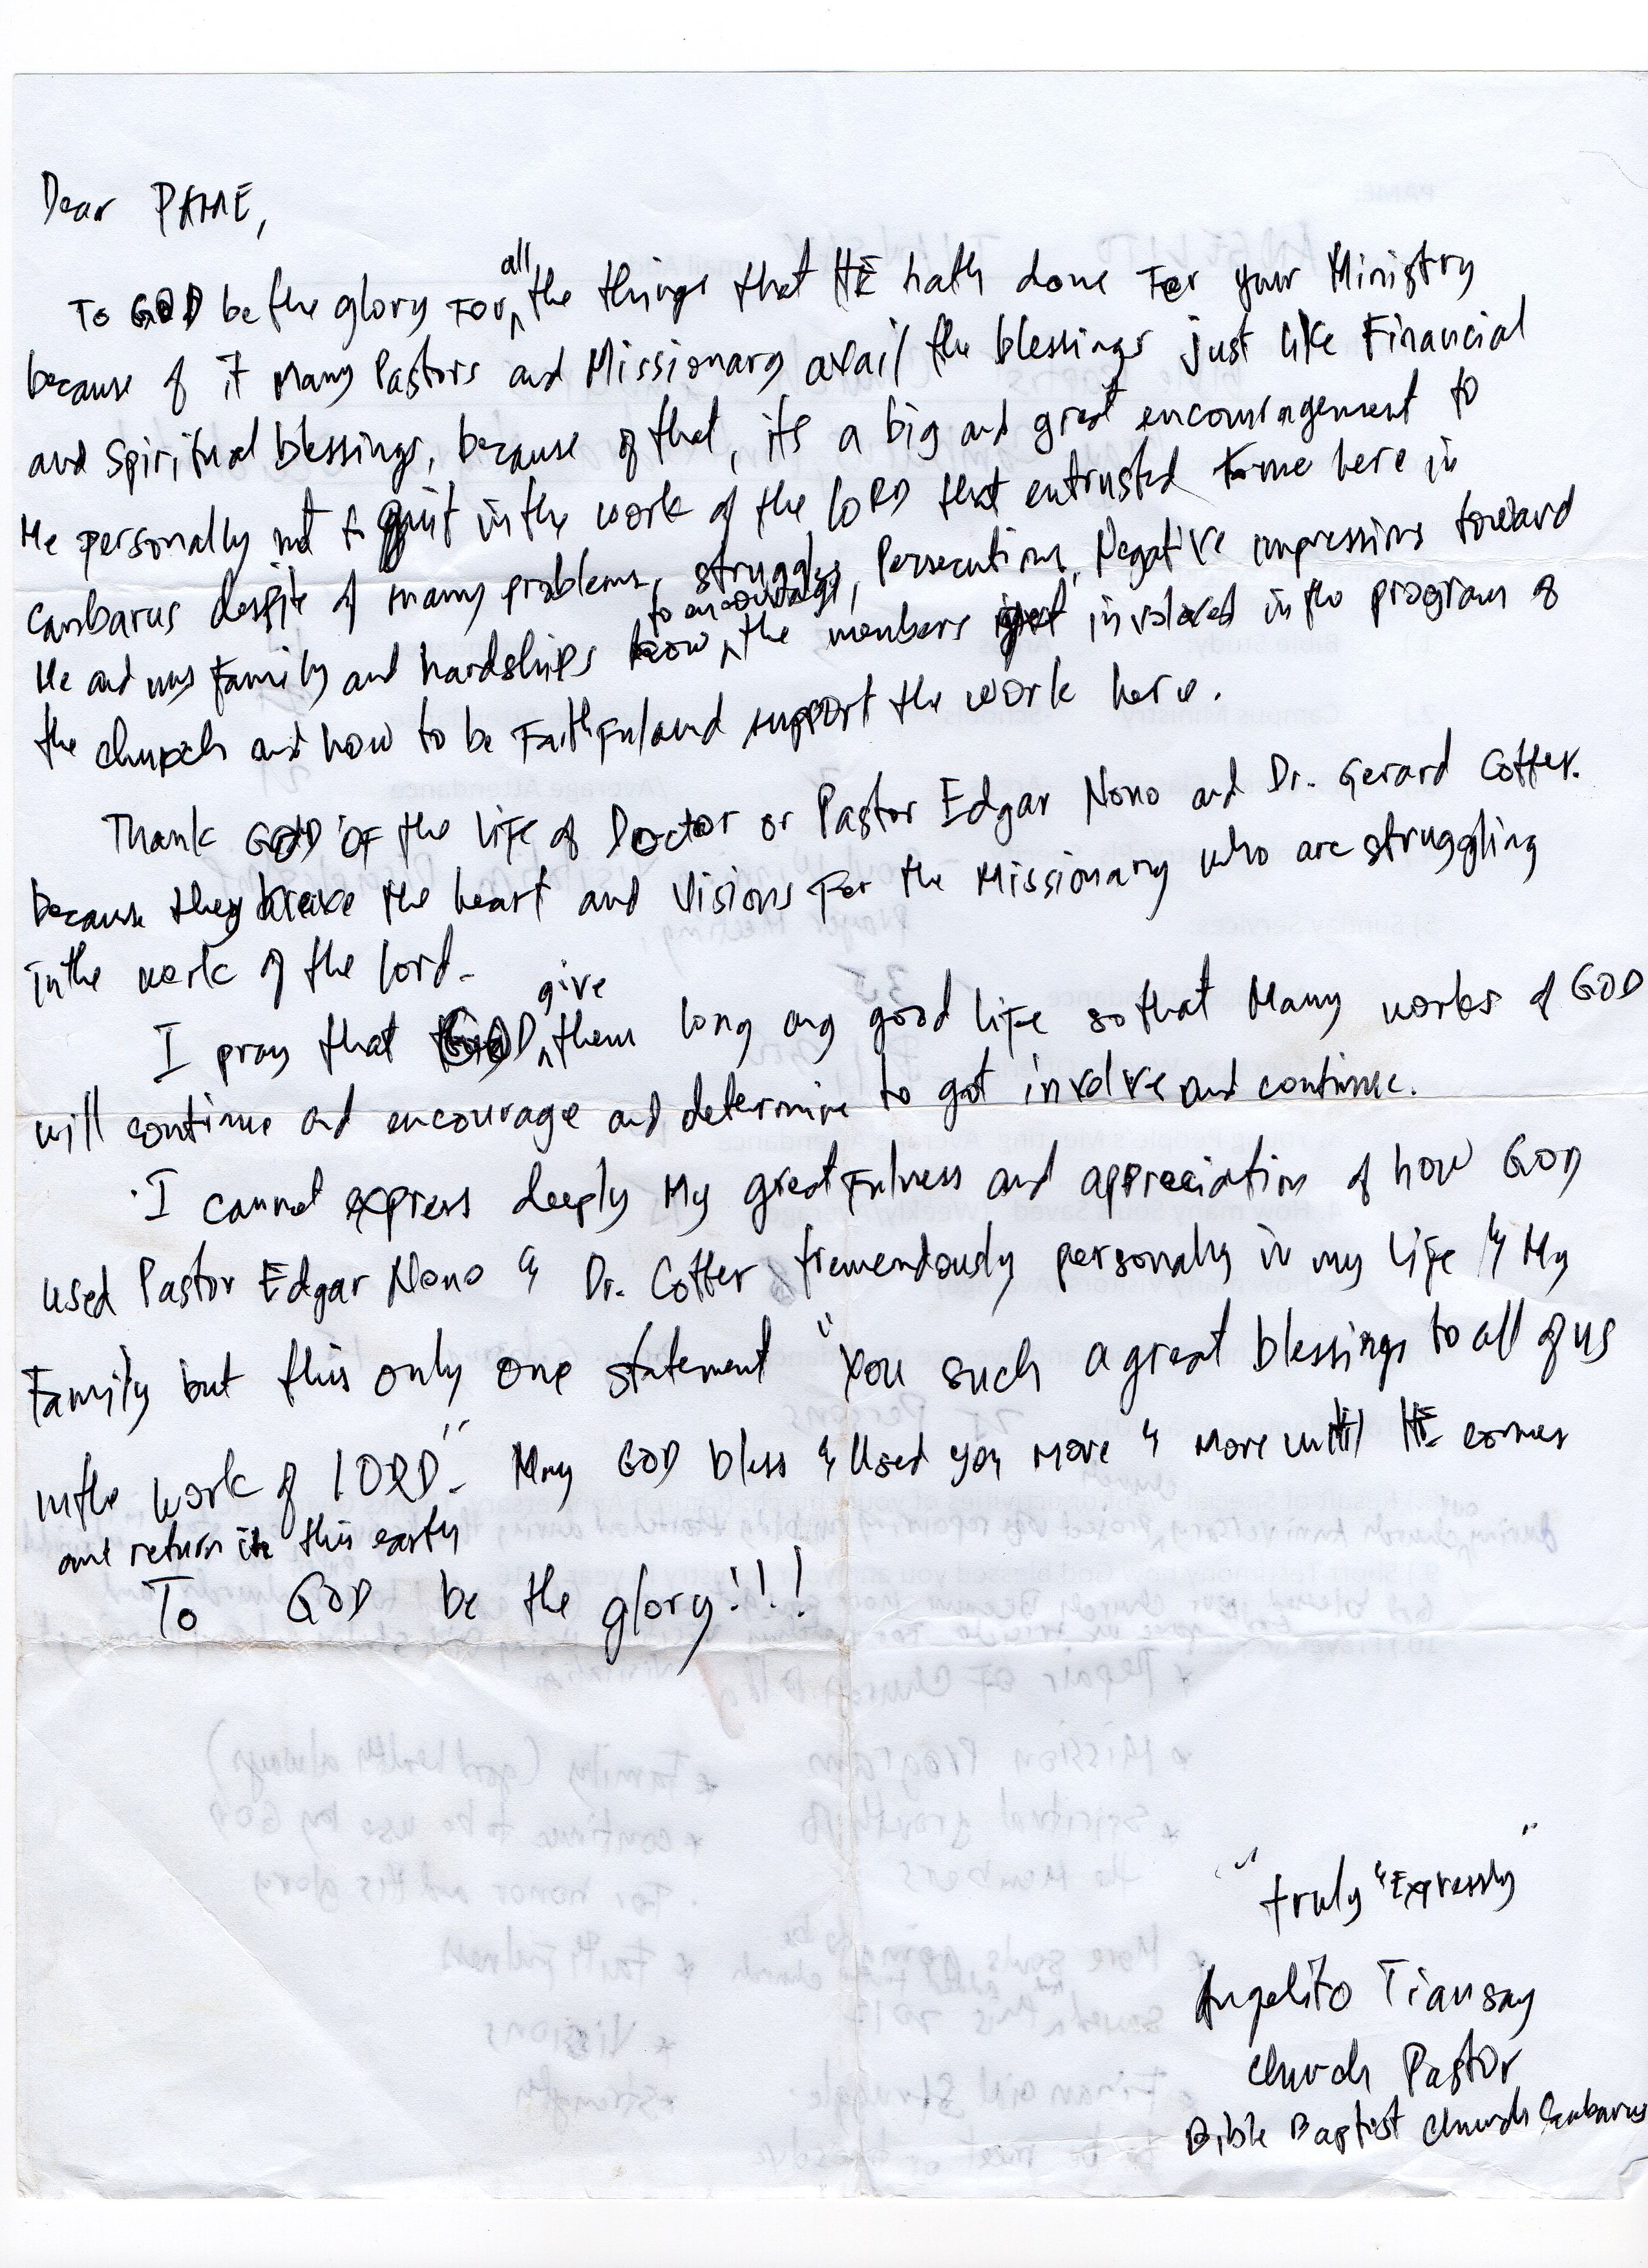 Dear PAME,
To GOD be the glory For all the things that HE hath done For your Ministry
because of it Many Pastors and Missionary avail the blessings just like Financial
and Spiritual blessings, because of that, its a big and great encouragement to
Me personally not to quit in the work of the LORD that entrusted to me here in
Cambarus despite of many problems, struggles, Persecutions, Negative impressions toward
Me and my Family and hardships how to encourage the members get involved in the program of
the church and how to be Faithful and support the work here.
Thank GOD OF the life of Doctor or Pastor Edgar Nono and Dr. Gerard Cotter.
because they have the heart and Visions For the Missionary who are struggling
in the work of the lord.
I pray that GOD give them long ang good life so that Many works of GOD
will continue and encourage and determine to got involve and continue.
I cannot express deeply My greatfulness and appreciation of how GOD
used Pastor Edgar Nono & Dr. Cotter tremendously personally in my life & My
Family but this only one statement "You such a great blessings to all of us
in the work of LORD". May GOD bless & Used you More & More until HE comes
and return in this earth
To GOD be the glory!!!
"truly & Expressly"
Angelito Tiansay
Church Pastor
Bible Baptist Church Cambarus